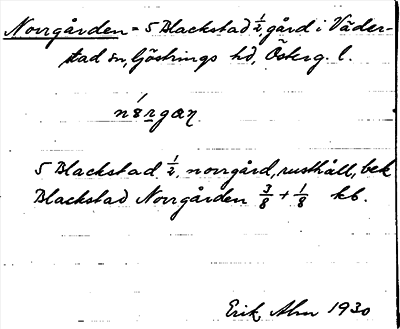 Norrgården = 5 Blackstad ½ gård i Väder-
stad sn, Göstrings hd, Österg. l.
5 Blackstad ½, norrgård, rusthåll, bek
Blackstad Norrgården 3/8 + 1/8 kb.
Erik Alm 1930